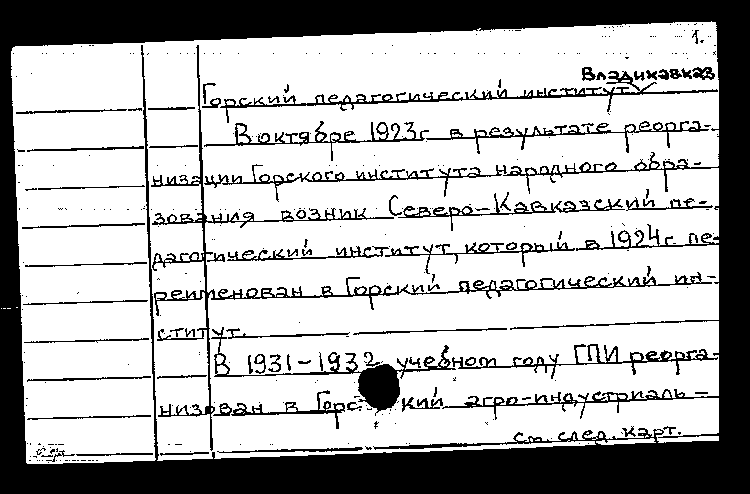 1.
Владикавказ
Горский педагогический институт
В октябре 1923г. в результате реорга-
низации Горского института народного обра-
зования возник Северо-Кавказский пе-
дагогический институт, который в 1924г. пе-
реименован в Горский педагогический ин-
ститут.
В 1931-1932 учебном году ГПИ реорга-
низован в Горский агро-индустриаль-
см. след. карт.